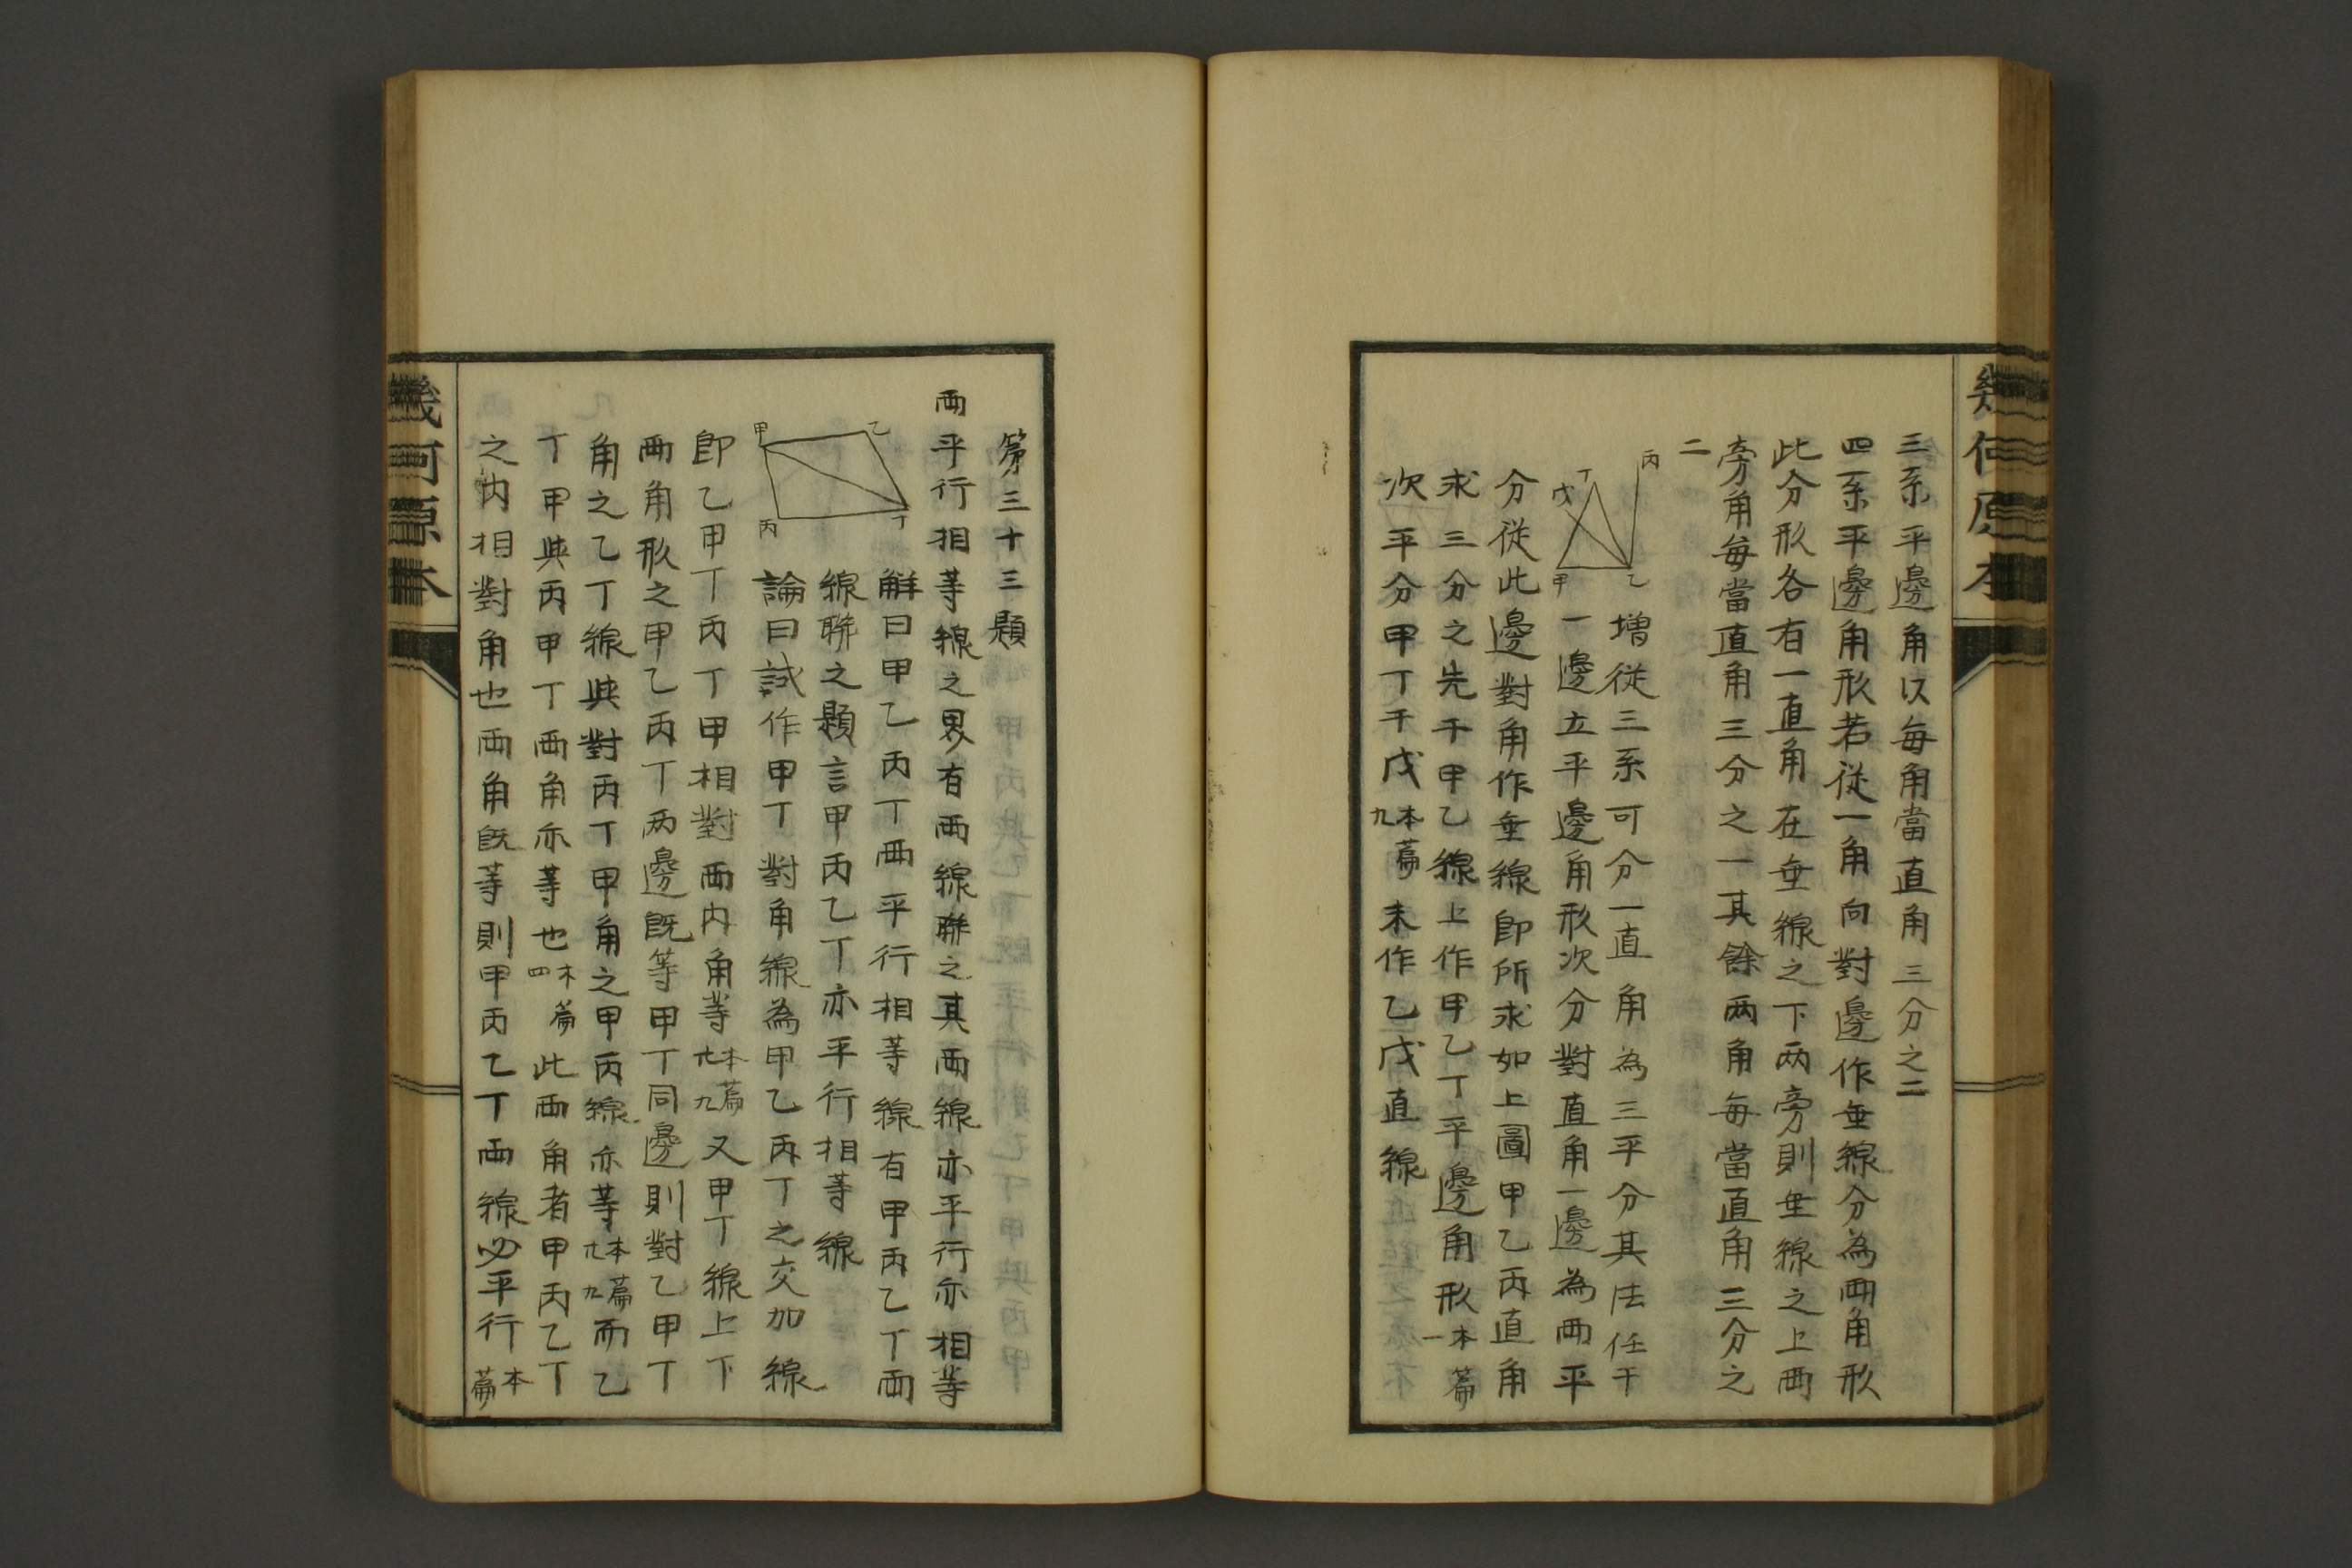 幾何原本
三系平邊角以每角當直角三分之二
四系平邊角形若從一角向對邊作垂線分為兩角形
此分形各有一直角在垂線之下兩旁則垂線之上兩
旁角每當直角三分之一其餘兩角每當直角三分之
二
丙
丁
戊
甲
乙
增從三系可分一直角為三平分其法任于
一邊立平邊角形次分對直角一邊為兩平
分從此邊對角作垂線即所求如上圖甲乙丙直角
求三分之先于甲乙線上作甲乙丁平邊角形本篇一
次平分甲丁于戊本篇九末作乙戊直線
第三十三題
兩平行相等線之界有兩線聯之其兩線亦平行亦相等
解曰甲乙丙丁兩平行相等線有甲丙乙丁兩
線聯之題言甲丙乙丁亦平行相等線
甲
乙
丙
丁
論曰試作甲丁對角線為甲乙丙丁之交加線
即乙甲丁丙丁甲相對兩內角等本篇廿九又甲丁線上下
兩角形之甲乙丙丁兩邊既等甲丁同邊則對乙甲丁
角之乙丁線與對丙丁甲角之甲丙線亦等本篇廿九而乙
丁甲與丙甲丁兩角亦等也本篇四此兩角者甲丙乙丁
之內相對角也兩角既等則甲丙乙丁兩線必平行本篇
幾何原本